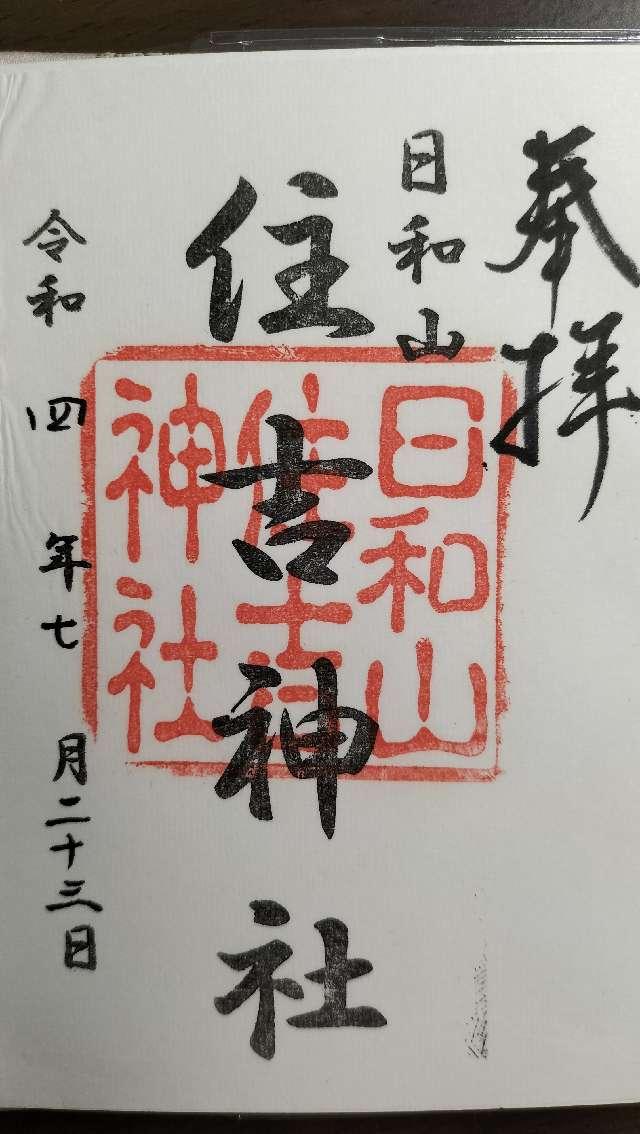 奉拝
日和山
住吉神社
日和山
住吉
神社
令和四年七月二十三日